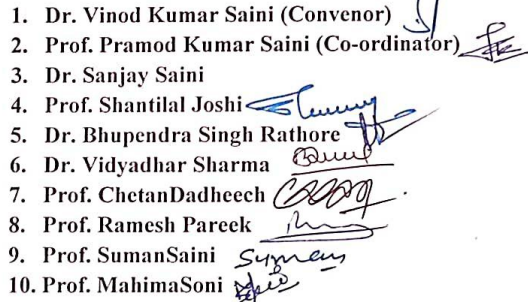 1. Dr. Vinod Kumar Saini (Convenor)
2. Prof. Pramod Kumar Saini (Co-ordinator)
3. Dr. Sanjay Saini
4. Prof. Shantilal Joshi
5. Dr. Bhupendra Singh Rathore
6. Dr. Vidyadhar Sharma
7. Prof. ChetanDadheech
8. Prof. Ramesh Pareek
9. Prof. SumanSaini Suman
10. Prof. MahimaSoni